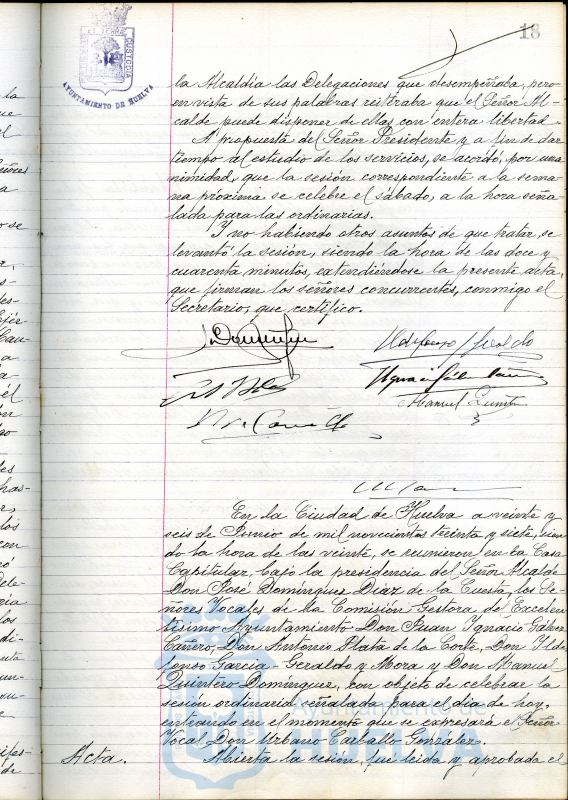 18
AYUNTAMIENTO DE HUELVA
CUSTODIA
la Alcaldía las Delegaciones que desempeñaba, pero
en vista de sus palabras reiteraba que el Señor Al-
calde puede disponer de ellas con entera libertad.
A propuesta del Señor Presidente y a fin de dar
tiempo al estudio de los servicios, se acordó, por una
nimidad, que la sesión correspondiente a la sema-
na próxima se celebre el sábado, a la hora seña-
lada para las ordinarias.
Y no habiendo otros asuntos de que tratar, se
levantó la sesión, siendo la hora de las doce y
cuarenta minutos, extendiéndose la presente acta,
que firman los señores concurrentes, conmigo el
Secretario, que certifico.
Manuel Quintero
En la Ciudad de Huelva a veinte y
seis de Junio de mil novecientos treinta y siete, sien
do la hora de las veinte, se reunieron en la Casa
Capitular, bajo la presidencia del Señor Alcalde
Don José Domínguez Díaz de la Cuesta, los Se-
ñores Vocales de la Comisión Gestora del Excelen
tísimo Ayuntamiento Don Juan Ignacio Gálvez
Cañero, Don Antonio Plata de la Corte, Don Ilde
fonso García Geraldo y Mora y Don Manuel
Quintero Domínguez, con objeto de celebrar la
sesión ordinaria señalada para el día de hoy,
entrando en el momento que se expresará el Señor
Vocal Don Urbano Carballo González.
Acta. Abierta la sesión, fué leída y aprobada el
Ayuntamiento de
HUELVA